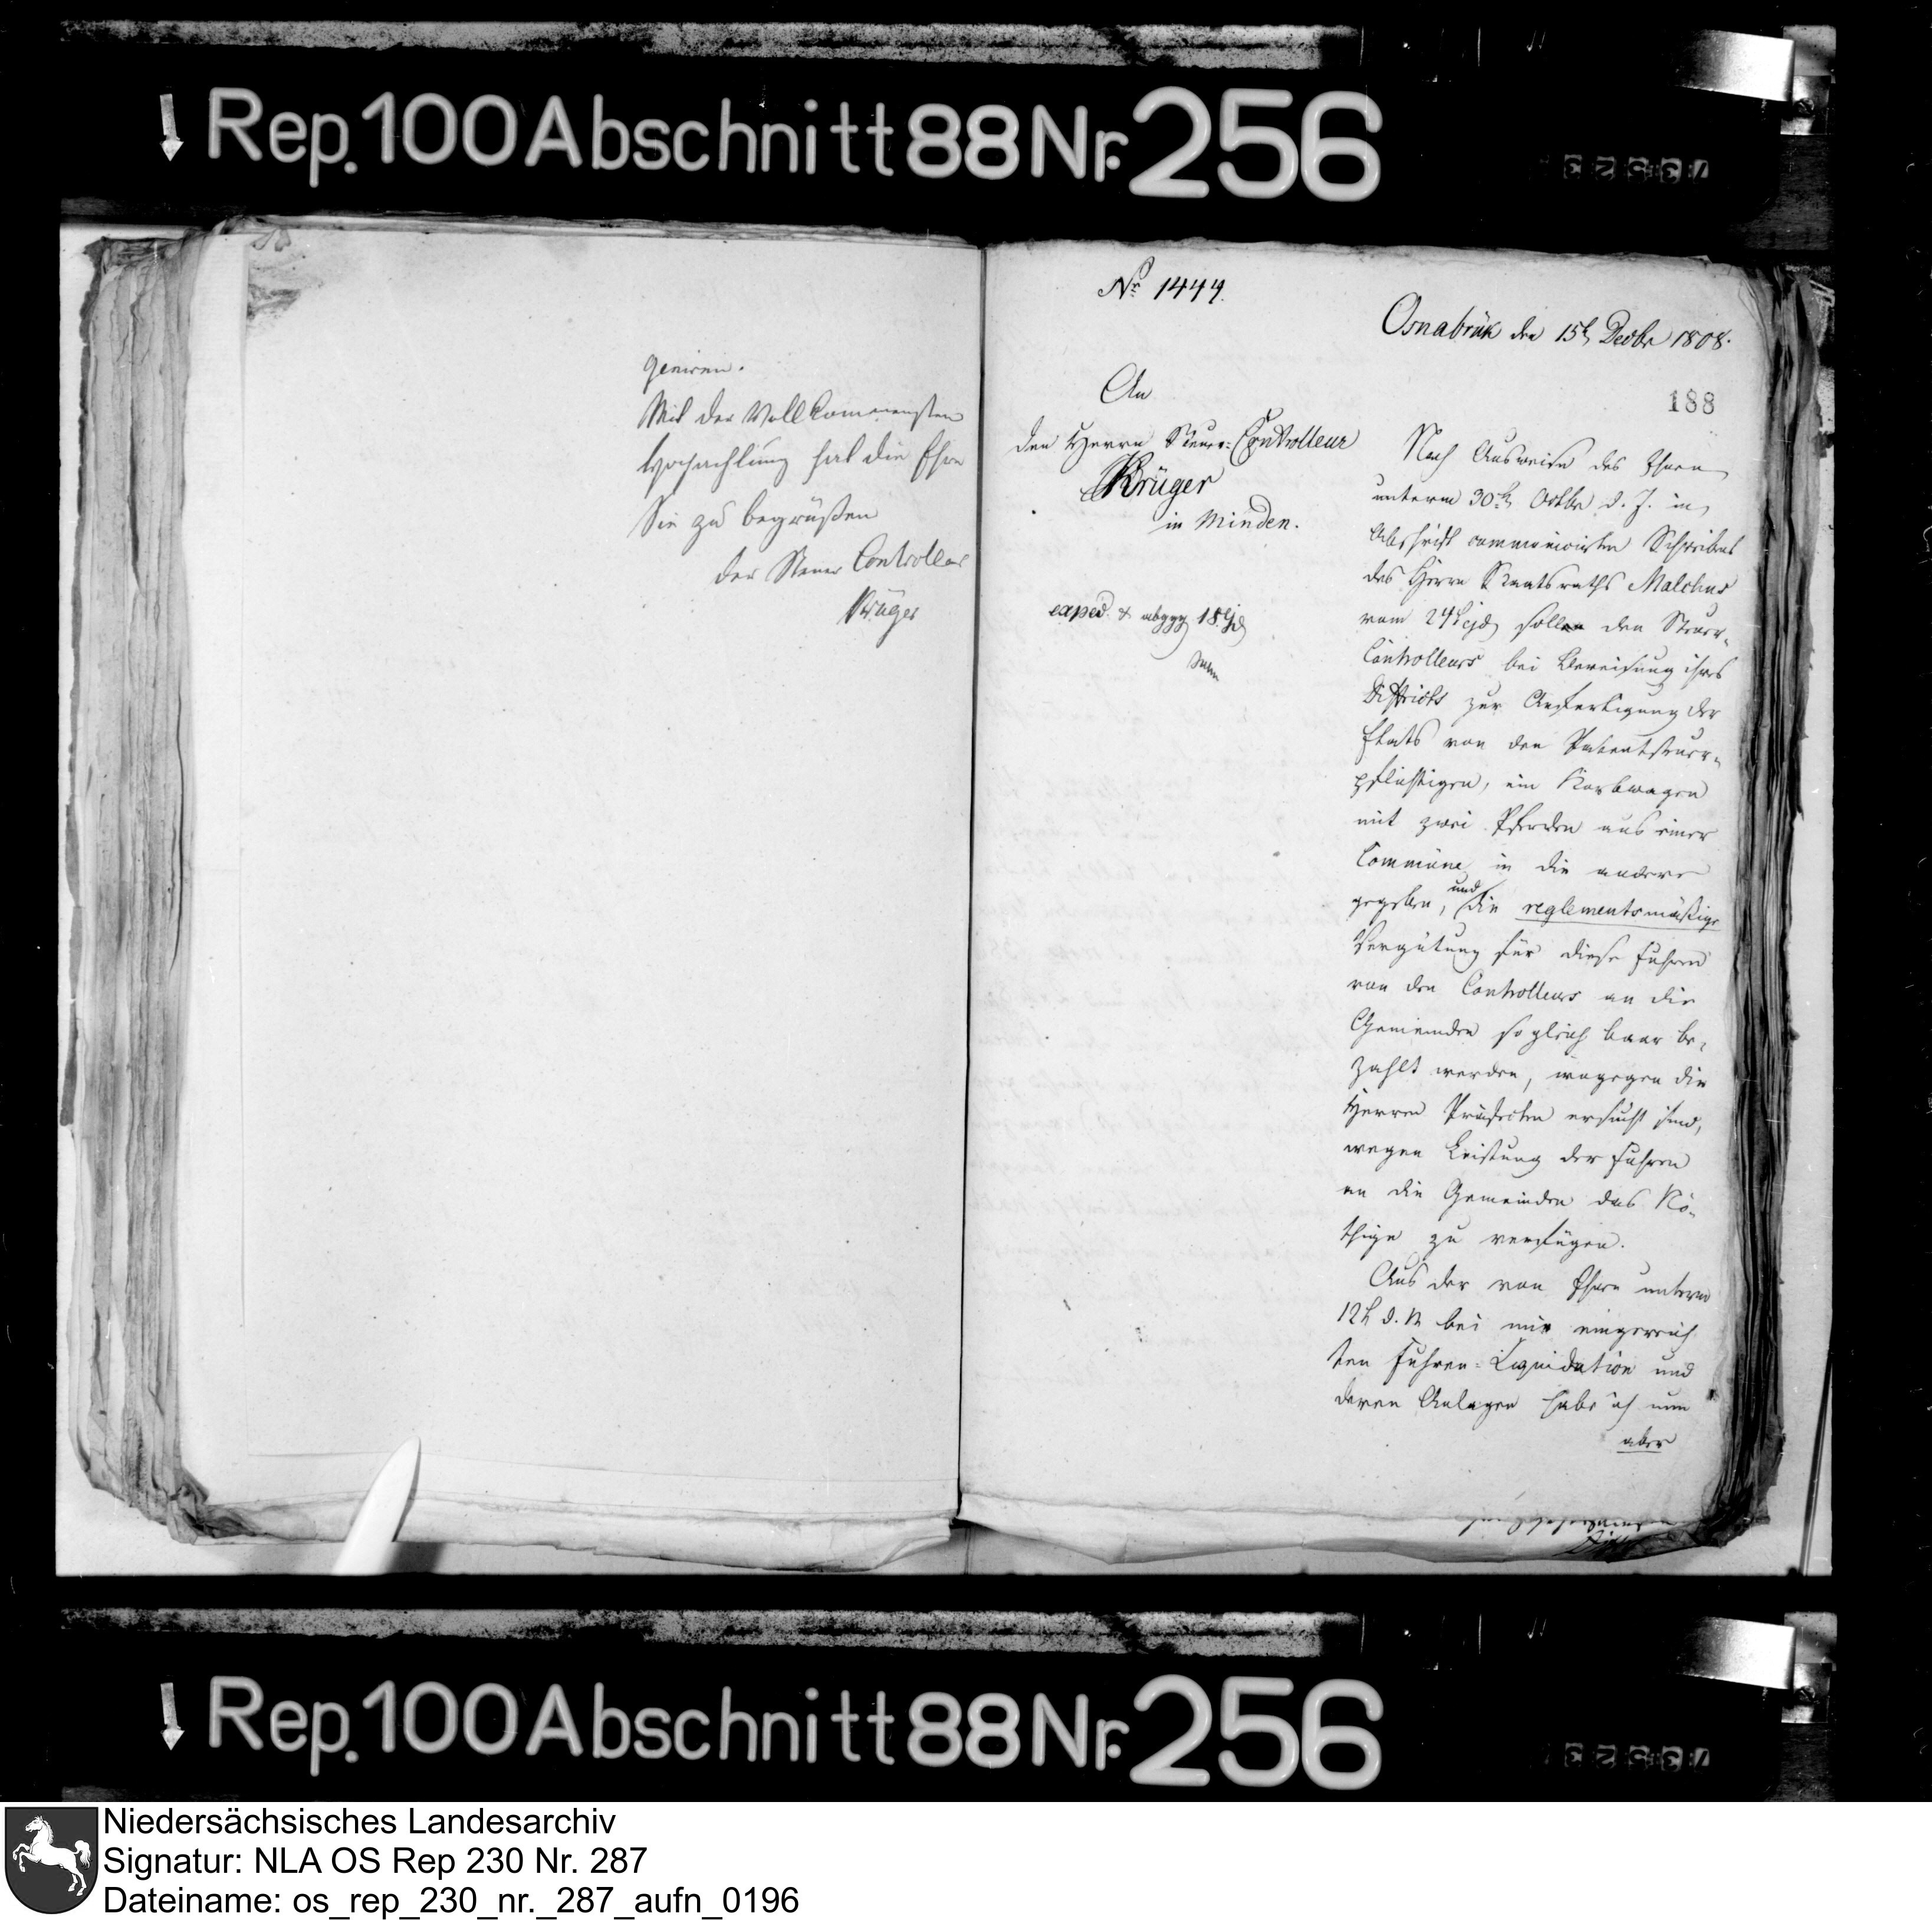 Rep. 100 Abschnitt 88 Nr. 256
geniren.
Mit der Vollkommensten
Hochachtung hat die Ehre
Sie zu begrüßen
der Steuer Controlleur
Krüger
Nr. 1444.
Osnabrük den 15t Decbr 1808.
188
An
den Herrn Steuer-Controlleur
Krüger
in Minden.
exped. & abgeg 18 ejd
Nach Ausweise des Ihnen
unterm 30t Octbr d. J. in
Abschrift communicirten Schreibens
des Herrn Staatsraths Malchus
vom 24t ejd sollen den Steuer-
Controlleurs bei Bereisung ihres
Districts zur Anfertigung der
Etats von den Patentsteuer-
pflichtigen, ein Korbwagen
mit zwei Pferden aus einer
Commüne in die andere
gegeben, und die reglementsmäßige
Vergütung für diese Fuhren
von den Controlleurs an die
Gemeinden sogleich baar be-
zahlt werden, wogegen die
Herren Präfecten ersucht sind,
wegen Leistung der Fuhren
an die Gemeinden das Nö-
thige zu verfügen.
Aus der von Ihnen unterm
12t d. M bei mir eingereich
ten Fuhren-Liquidation und
deren Anlagen habe ich nun
aber
Rep. 100 Abschnitt 88 Nr. 256
Niedersächsisches Landesarchiv
Signatur: NLA OS Rep 230 Nr. 287
Dateiname: os_rep_230_nr._287_aufn_0196